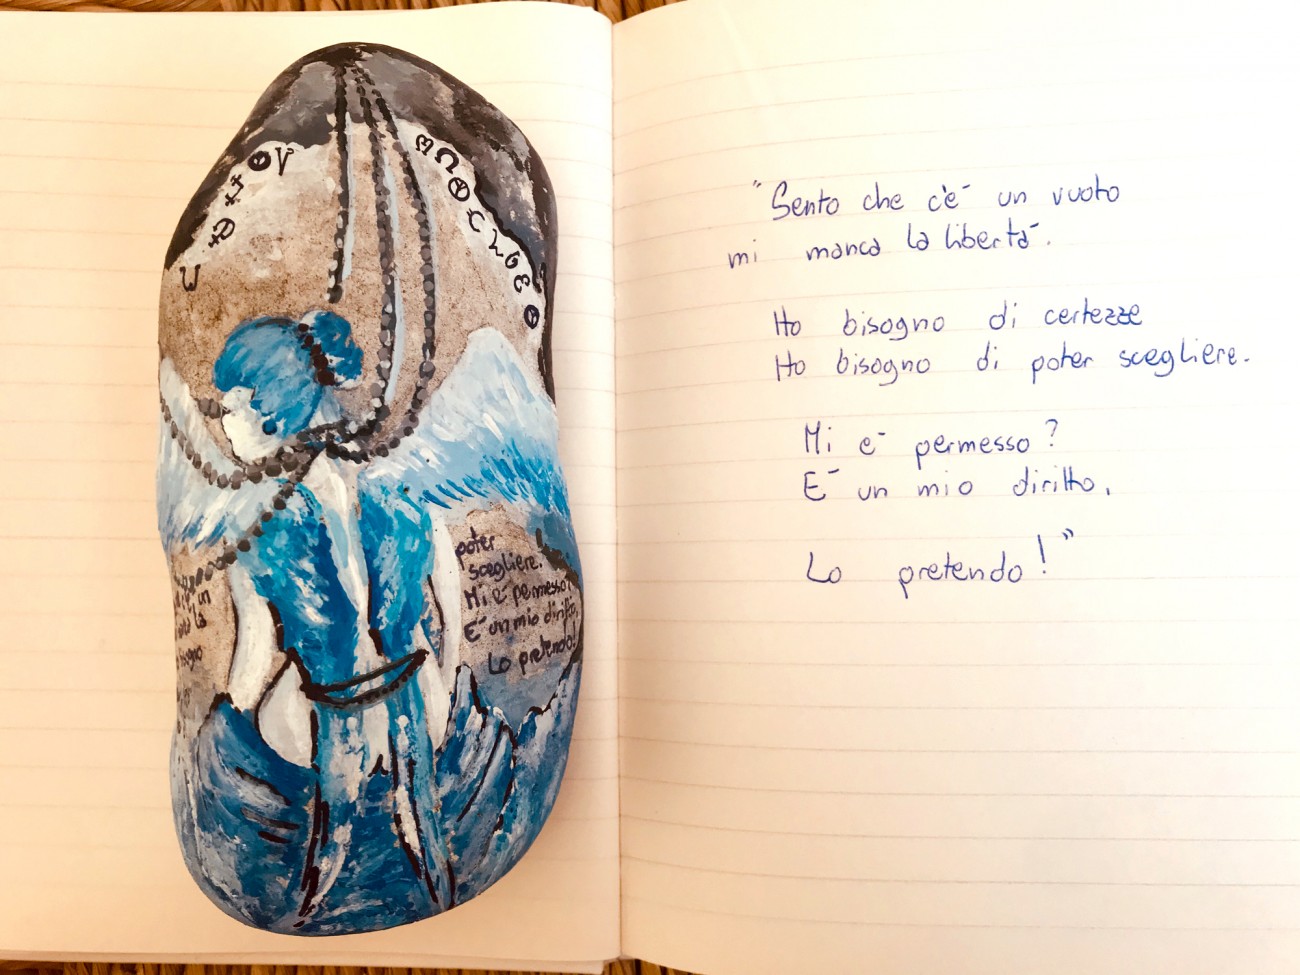 "Sento che c'è un vuoto
mi manca la libertà.
Ho bisogno di certezze
Ho bisogno di poter scegliere.
Mi è permesso?
È un mio diritto,
Lo pretendo!"
poter
scegliere.
Mi è permesso?
È un mio diritto,
Lo pretendo!
un
la
bisogno